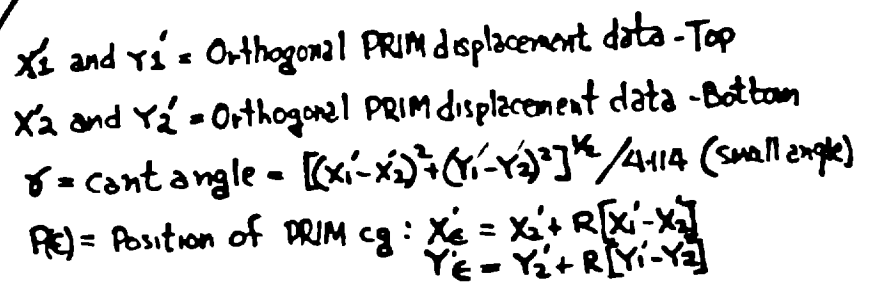 X'1 and Y1' = Orthogonal PRIM displacement data - Top
X'2 and Y2' = Orthogonal PRIM displacement data - Bottom
γ = cant angle = [(X1'-X2')²+(Y1'-Y2')²]^½ /4.114 (small angle)
P(ϵ) = Position of PRIM cg : X'ϵ = X2'+ R[X1'-X2']
Y'ϵ = Y2'+ R[Y1'-Y2']